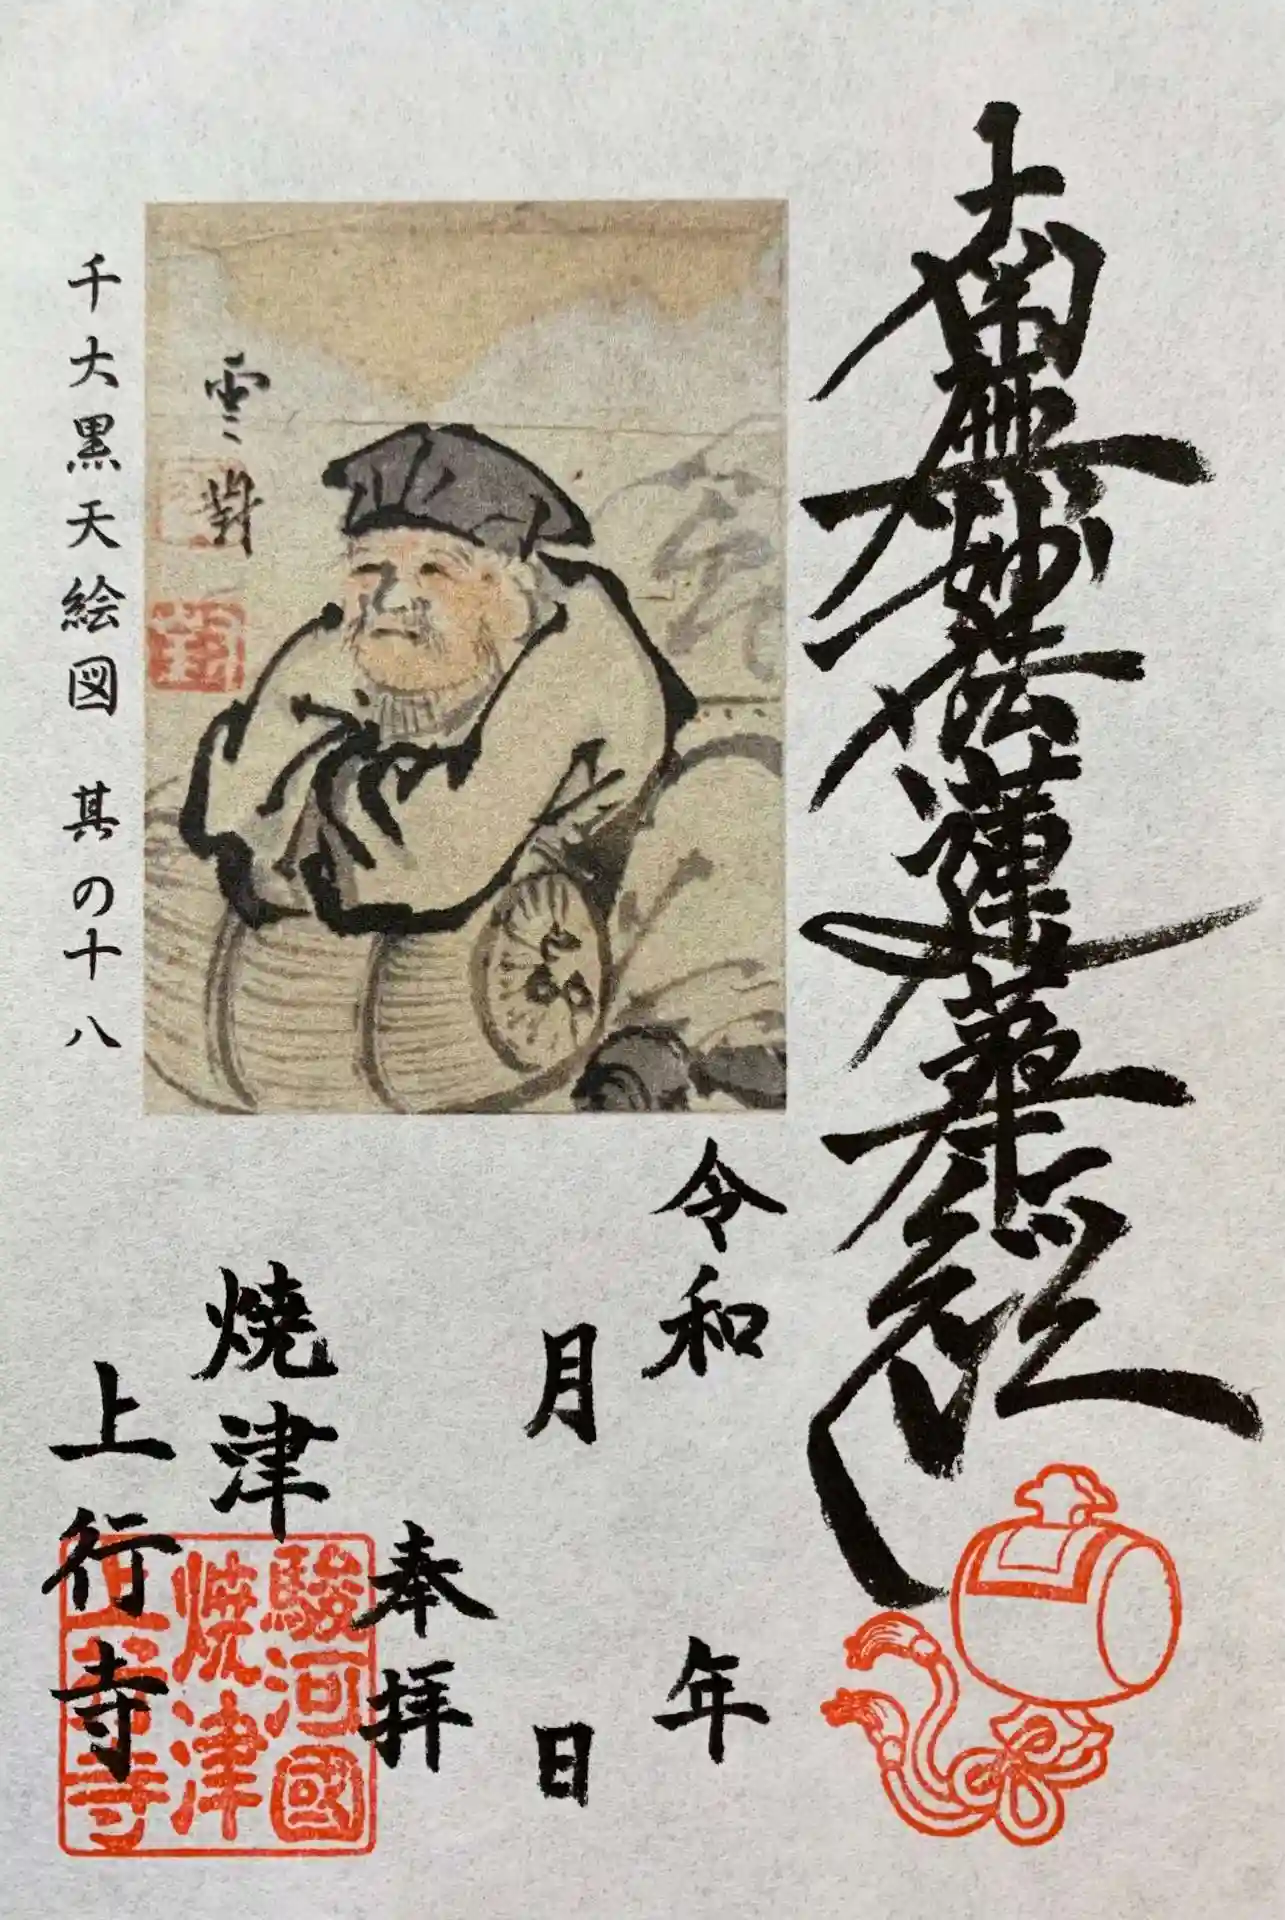 南無妙法蓮華経
千大黒天絵図 其の十八
令和 年
月 日
奉拝
焼津
上行寺
駿河國
焼津
上行寺